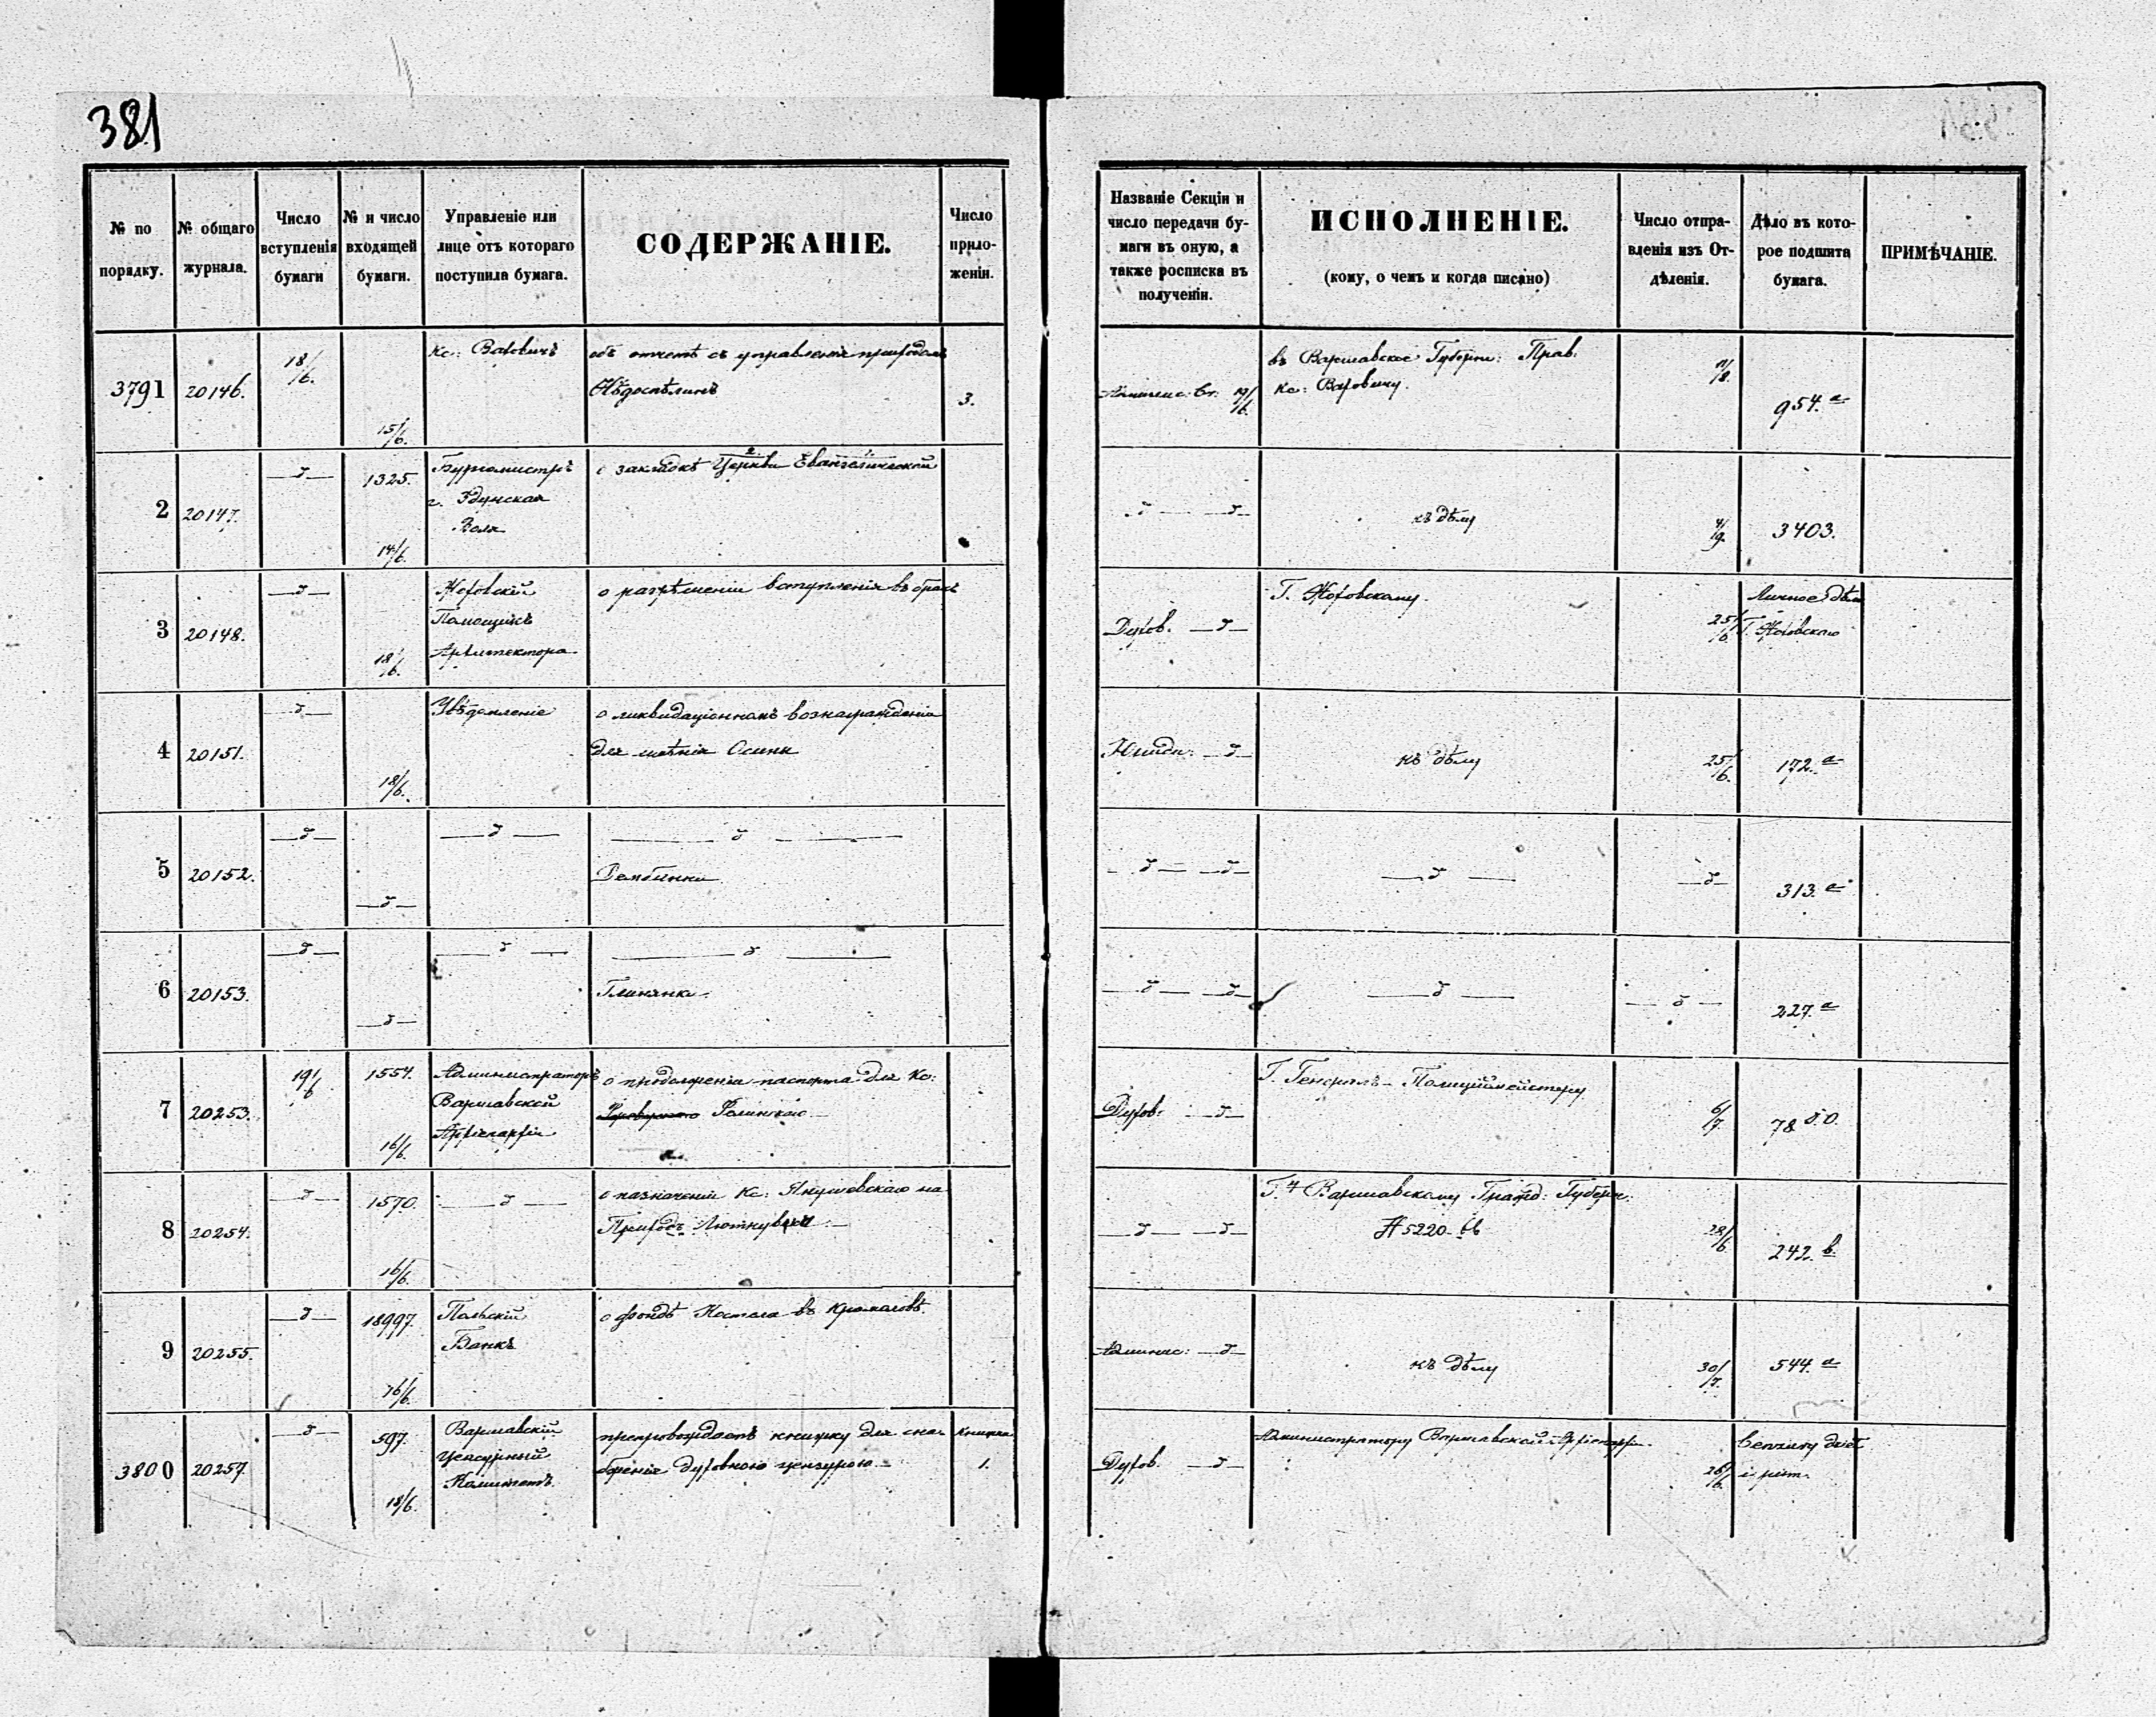 381
№ по порядку.
№ общаго журнала.
Число вступленія бумаги
№ и число входящей бумаги.
Управленіе или лице отъ котораго поступила бумага.
СОДЕРЖАНІЕ.
Число прило-женія.
Названіе Секціи и число передачи бу-маги въ оную, а также росписка въ полученіи.
ИСПОЛНЕНІЕ.
(кому, о чемъ и когда писано)
Число отпра-вленія изъ От-дѣленія.
Дѣло въ кото-рое подшита бумага.
ПРИМѢЧАНІЕ.
3791
20146.
18/6.
15/6.
Кс:
объ отчетѣ съ управленія приходомъ
3.
19/6.
въ Варшавское Губерн: Прав:
Кс:
11/8.
954. а
2
20147.
—д—
1325.
14/6.
Бургомистръ
г. Здунская
Воля
о закладкѣ Церкви Евангелической
—д— —д—
къ дѣлу
4/9.
3403.
3
20148.
—д—
18/6.
Помощникъ
Архитектора
о разрѣшеніи вступленія въ бракъ
Духов. —д—
25/6.
Личное дѣло
4
20151.
—д—
18/6.
Увѣдомленіе
о ликвидаціонномъ вознагражденіи
для имѣнія Осины
—д—
къ дѣлу
25/6.
172. а
5
20152.
—д—
—д—
—д—
—д—
Дембинки
—д— —д—
—д—
—д—
313. а
6
20153.
—д—
—д—
—д—
—д—
Глинянка
—д— —д—
—д—
—д—
227. а
7
20253.
19/6
1554.
16/6.
Администраторъ
Варшавской
Архіепархіи
о продолженіи паспорта для Кс:
Духов. —д—
Г. Генералъ-Полицiймейстеру
6/7.
78
8
20254.
—д—
1570.
16/6.
—д—
о назначеніи Кс: Янушевскаго на
Приходъ
—д— —д—
Варшавскому Гражд: Губерн:
№ 5220
28/6.
242. b.
9
20255.
—д—
18997.
16/6.
Польскій
Банкъ
о фондѣ Костела въ
—д—
къ дѣлу
30/7.
544 а
3800
20257.
—д—
597.
18/6.
Варшавскій
Цензурный
Комитетъ
препровождаетъ книжку для сна-
бженія духовною цензурою
Книжка
1.
Духов. —д—
Администратору Варшавской Архіепархіи.
26/6.
Cenzury dzieł
i pism.